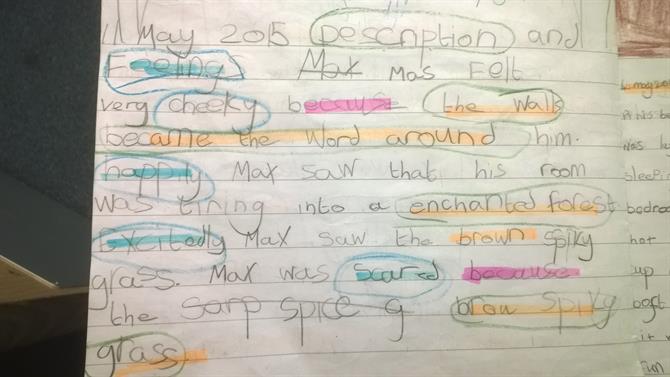 11 May 2015 Description and
Feeling Max Mas Felt
very cheeky because the walls
became the Word around him.
happily Max saw that his room
was tirning into a enchanted forest
Excitedly Max saw the brown spiky
grass. Max was scared because
the sarp spice g brow spiky
grass